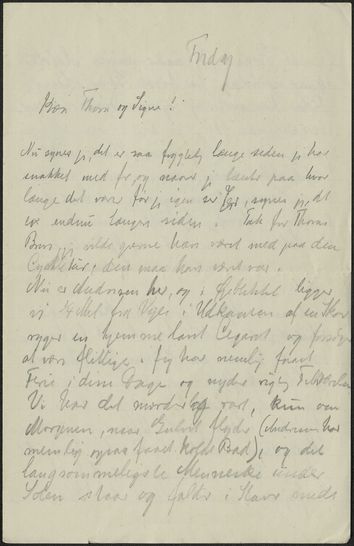 Friday
Kære Thora og Signe!
Nu synes jeg, det er saa frygtelig længe siden jeg har
snakket med jer og naar jeg tænker paa hvor
længe det varer før jeg igen ser Jer, synes jeg, det
er endnu længere siden. Tak for Thoras
Brev, jeg vilde gerne have været med paa den
Cykletur; den maa have været rar.
Nu er Andersen her, og i Øjeblikket ligger
vi fra Vejle i Udkanten af en Skov
ryger en hjemmelavet Cigaret og forsøger
at være flittige. Jeg har nemlig faaet
Ferie i dem Dage og nyder rigtig Tilværelsen
Vi har det morderlig rart, kun om
Morgenen, naar flyder (Andersen har
nemlig ogsaa faaet kolde Bad), og det
langsommeligste Menneske under
Solen staar og falder i Stave med